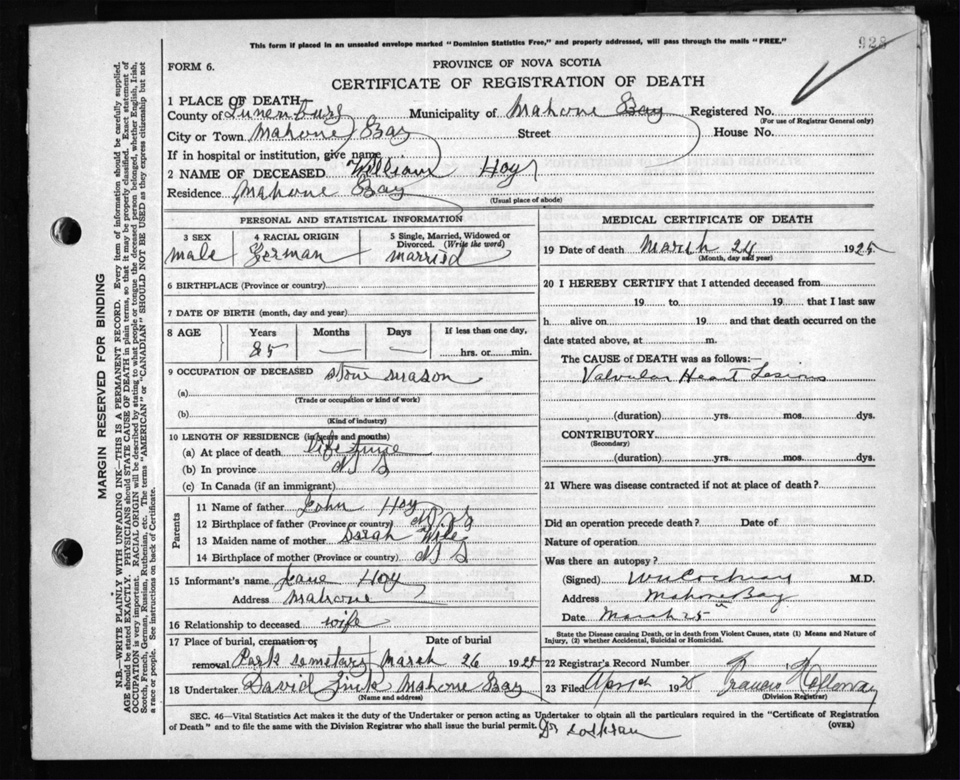 This form if placed in an unsealed envelope marked "Dominion Statistics Free," and properly addressed, will pass through the mails "FREE."
928
FORM 6.
PROVINCE OF NOVA SCOTIA
CERTIFICATE OF REGISTRATION OF DEATH
1 PLACE OF DEATH—
County of Lunenburg Municipality of Mahone Bay Registered No.
(For use of Registrar General only)
City or Town Mahone Bay Street House No.
If in hospital or institution, give name
2 NAME OF DECEASED William Hoy
Residence Mahone Bay
(Usual place of abode)
PERSONAL AND STATISTICAL INFORMATION
3 SEX 4 RACIAL ORIGIN 5 Single, Married, Widowed or Divorced. (Write the word)
male German married
6 BIRTHPLACE (Province or country)
7 DATE OF BIRTH (month, day and year)
8 AGE Years Months Days If less than one day,
85 — — hrs. or min.
9 OCCUPATION OF DECEASED stone mason
(a)
(Trade or occupation or kind of work)
(b)
(Kind of industry)
10 LENGTH OF RESIDENCE (in years and months)
(a) At place of death life time
(b) In province N S
(c) In Canada (if an immigrant)
Parents
11 Name of father John Hoy
12 Birthplace of father (Province or country) N. S
13 Maiden name of mother Sarah Wile
14 Birthplace of mother (Province or country) N S
15 Informant's name Jane Hoy
Address Mahone
16 Relationship to deceased wife
17 Place of burial, cremation or removal Date of burial
Park semetary March 26 192
18 Undertaker David Zink Mahone Bay
(Name and address)
MEDICAL CERTIFICATE OF DEATH
19 Date of death March 24 1925
(Month, day and year)
20 I HEREBY CERTIFY that I attended deceased from
19 to 19 that I last saw
h alive on 19 and that death occurred on the
date stated above, at m.
The CAUSE of DEATH was as follows:—
Valvular Heart Lesions
(duration) yrs. mos. dys.
CONTRIBUTORY
(Secondary)
(duration) yrs. mos. dys.
21 Where was disease contracted if not at place of death?
Did an operation precede death? Date of
Nature of operation
Was there an autopsy?
(Signed) Cochran M.D.
Address Mahone Bay
Date March 25th
State the Disease causing Death, or in death from Violent Causes, state (1) Means and Nature of
Injury, (2) whether Accidental, Suicidal or Homicidal.
22 Registrar's Record Number
23 Filed 19 Francis
(Division Registrar)
SEC. 46—Vital Statistics Act makes it the duty of the Undertaker or person acting as Undertaker to obtain all the particulars required in the "Certificate of Registration
of Death" and to file the same with the Division Registrar who shall issue the burial permit.
(OVER)
Dr Cochran
MARGIN RESERVED FOR BINDING
N.B.—WRITE PLAINLY WITH UNFADING INK—THIS IS A PERMANENT RECORD. Every item of information should be carefully supplied.
AGE should be stated EXACTLY. PHYSICIANS should STATE CAUSE OF DEATH in plain terms, so that it may be properly classified. Exact statement of
OCCUPATION is very important. RACIAL ORIGIN will be described by stating to what people or tongue the deceased person belonged, whether English, Irish,
Scotch, French, German, Russian, Ruthenian, etc. The terms "AMERICAN" or "CANADIAN" SHOULD NOT BE USED as they express citizenship but not
a race or people. See instructions on back of Certificate.